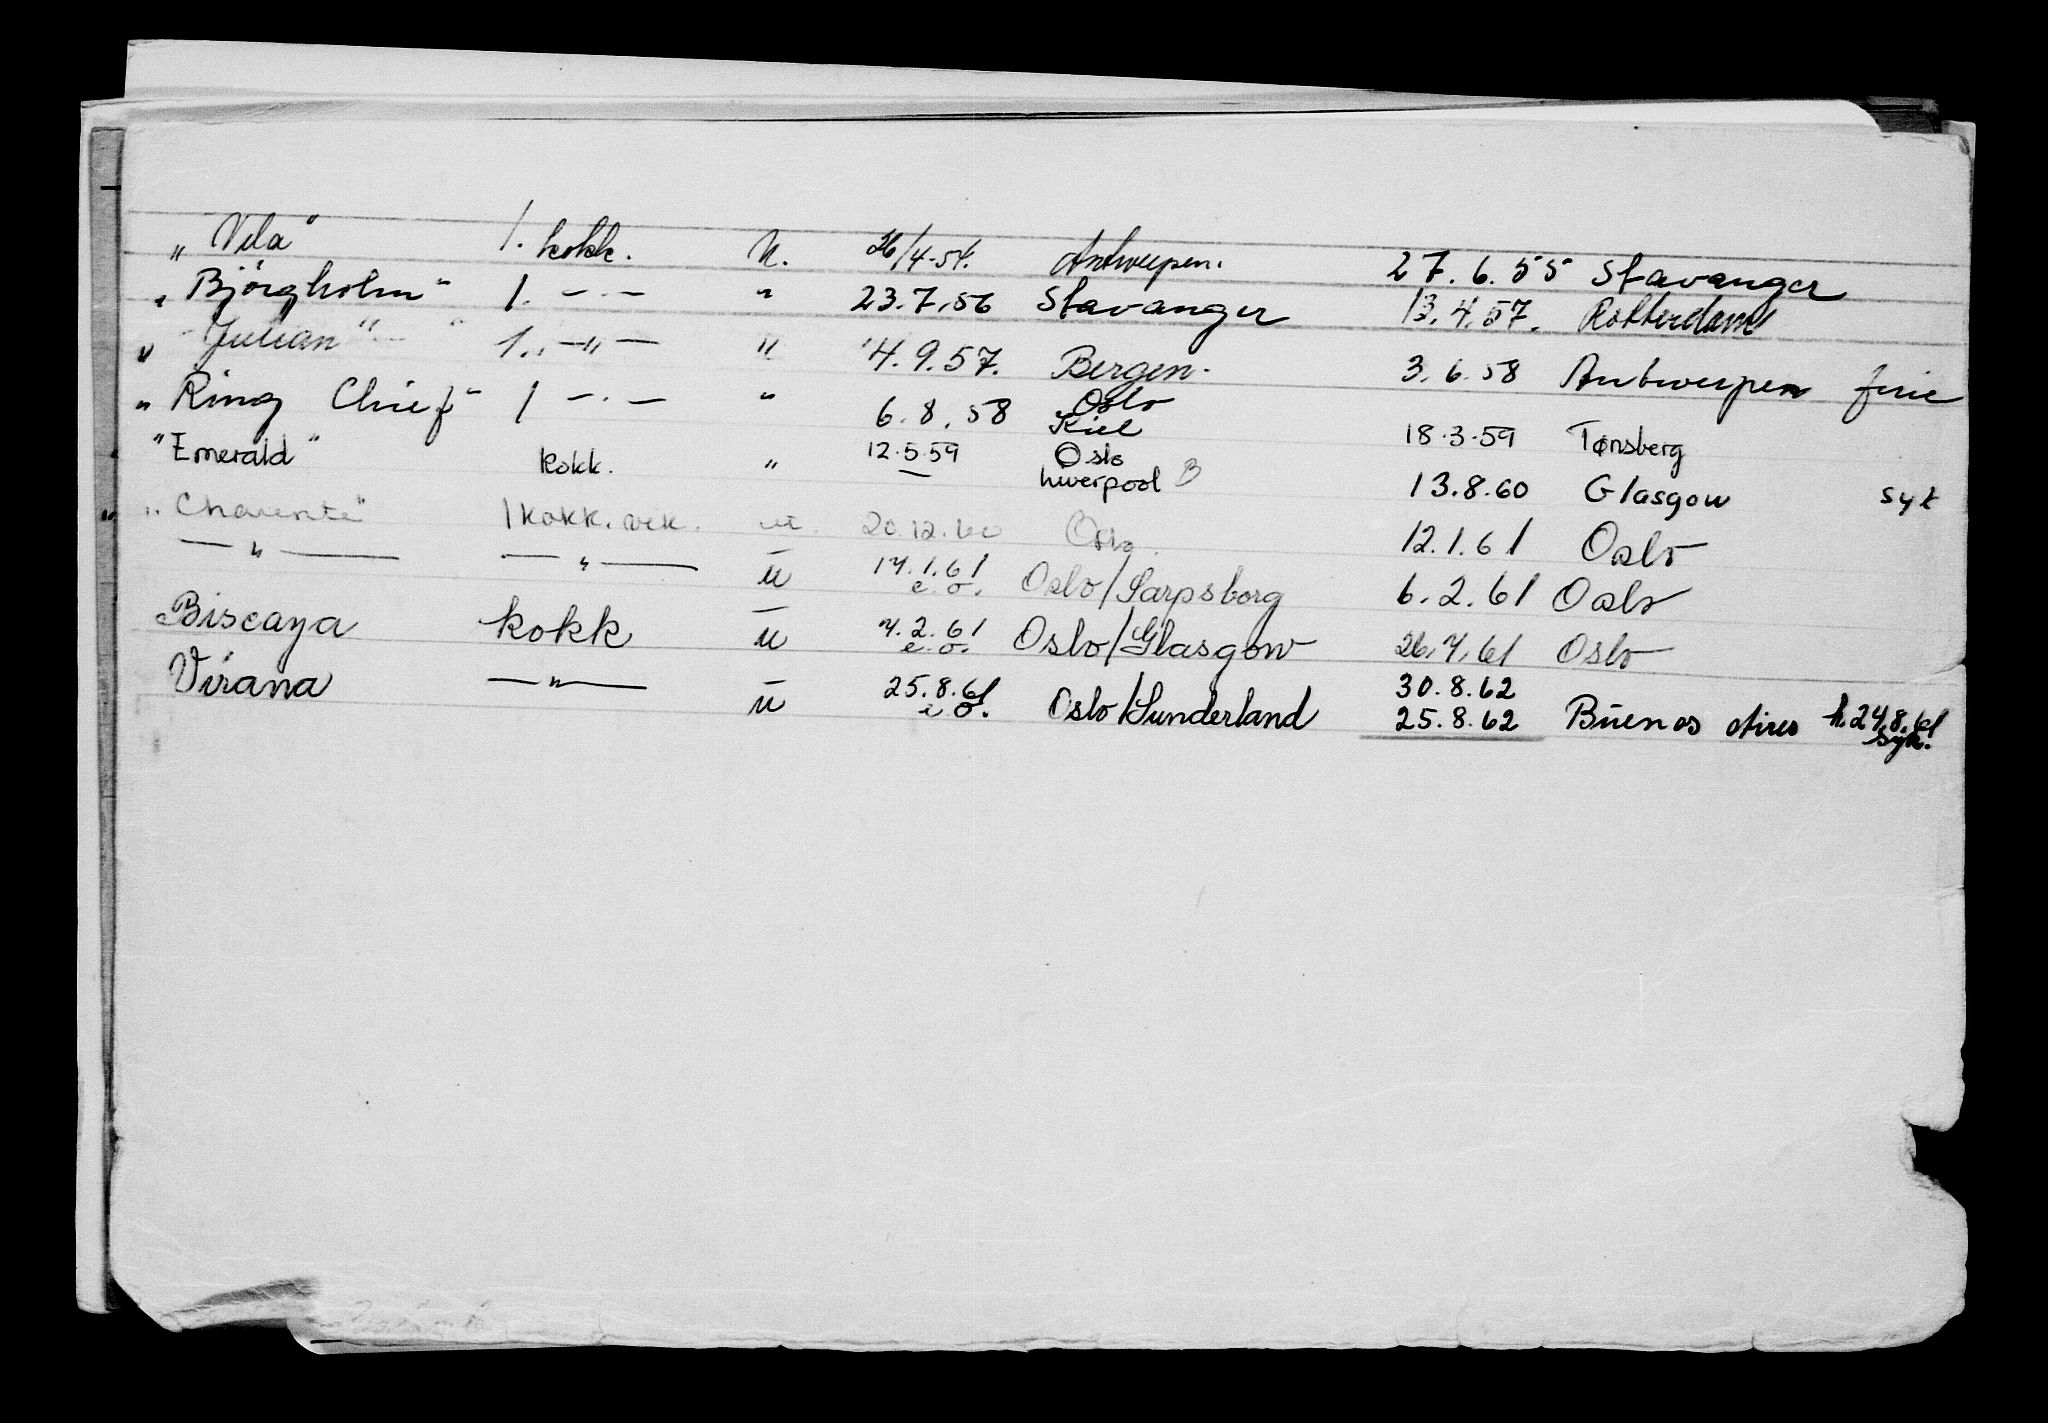 „ Vela" 1. kokk. U. 26/4-54. Antwerpen. 27.6.55 Stavanger
„ Bjørgholm" 1. — · — " 23.7.56 Stavanger 13.4.57. Rotterdam
„ Julian" 1. — " — " 4.9.57. Bergen. 3.6.58 Antwerpen ferie
„ Ring Chief" 1 — · — " 6.8.58 Oslo Kiel 18.3.59 Tønsberg
"Emerald" kokk. " 12.5.59 Oslo Liverpool B 13.8.60 Glasgow syk
„ Charente" 1 kokk. vik. u. 20.12.60 Oslo. 12.1.61 Oslo
— " — — " — u 14.1.61 e.o. Oslo/Sarpsborg 6.2.61 Oslo
Biscaya kokk u 7.2.61 e.o. Oslo/Glasgow 26.4.61 Oslo
Virana — " — u 25.8.61 e.o. Oslo/Sunderland 30.8.62
25.8.62 Buenos Aires h.24.8.61 syk.